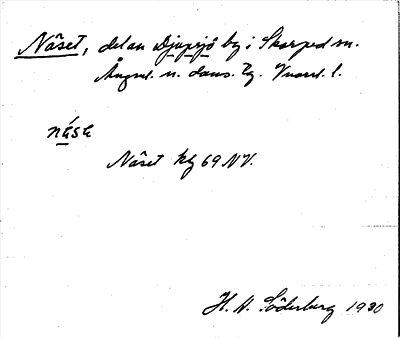 Näset, del av Djupsjö by i Skorped sn.
Ångml. n. doms. Tg. Vnorrl. l.
näsa
Näset kbl 69 NV.
H. W. Söderberg 1930